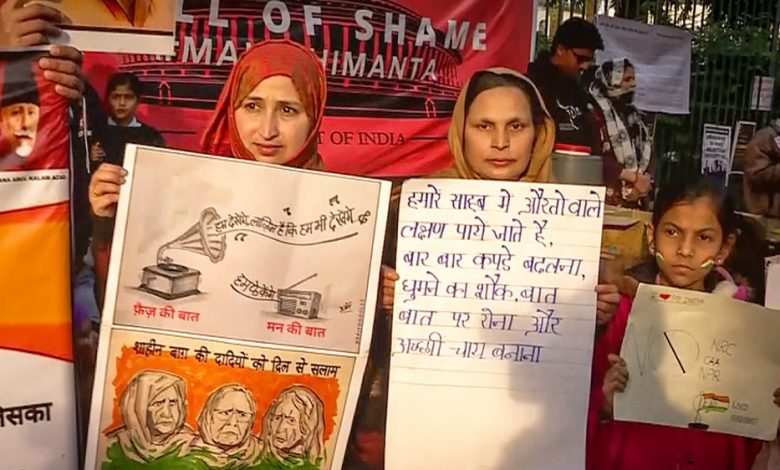 LL OF SHAME
HIMANTA
T OF INDIA
ANA ABUL KALAM AZAD
सका
हम देखेंगे, लाज़िम है कि हम भी देखेंगे
हम देखेंगे
फ़ैज़ की बात
मन की बात
शाहीन बाग की दादियों को दिल से सलाम
हमारे साहब मे औरतो वाले
लक्षण पाये जाते है,
बार बार कपड़े बदलना,
घुमने का शौक, बात
बात पर रोना और
अच्छी चाय बनाना
I ❤ INDIA
NO
NRC
CAA
NPR